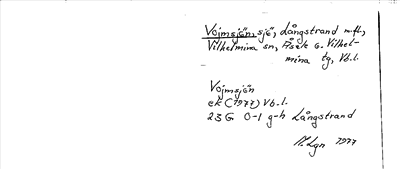 Vojmsjön, sjö, Långstrand m.fl.,
Vilhelmina sn, Åsele o. Vilhel-
mina tg, Vb.l.
Vojmsjön
ek (1977) Vb.l.
23 G 0-1 g-h Långstrand
1977